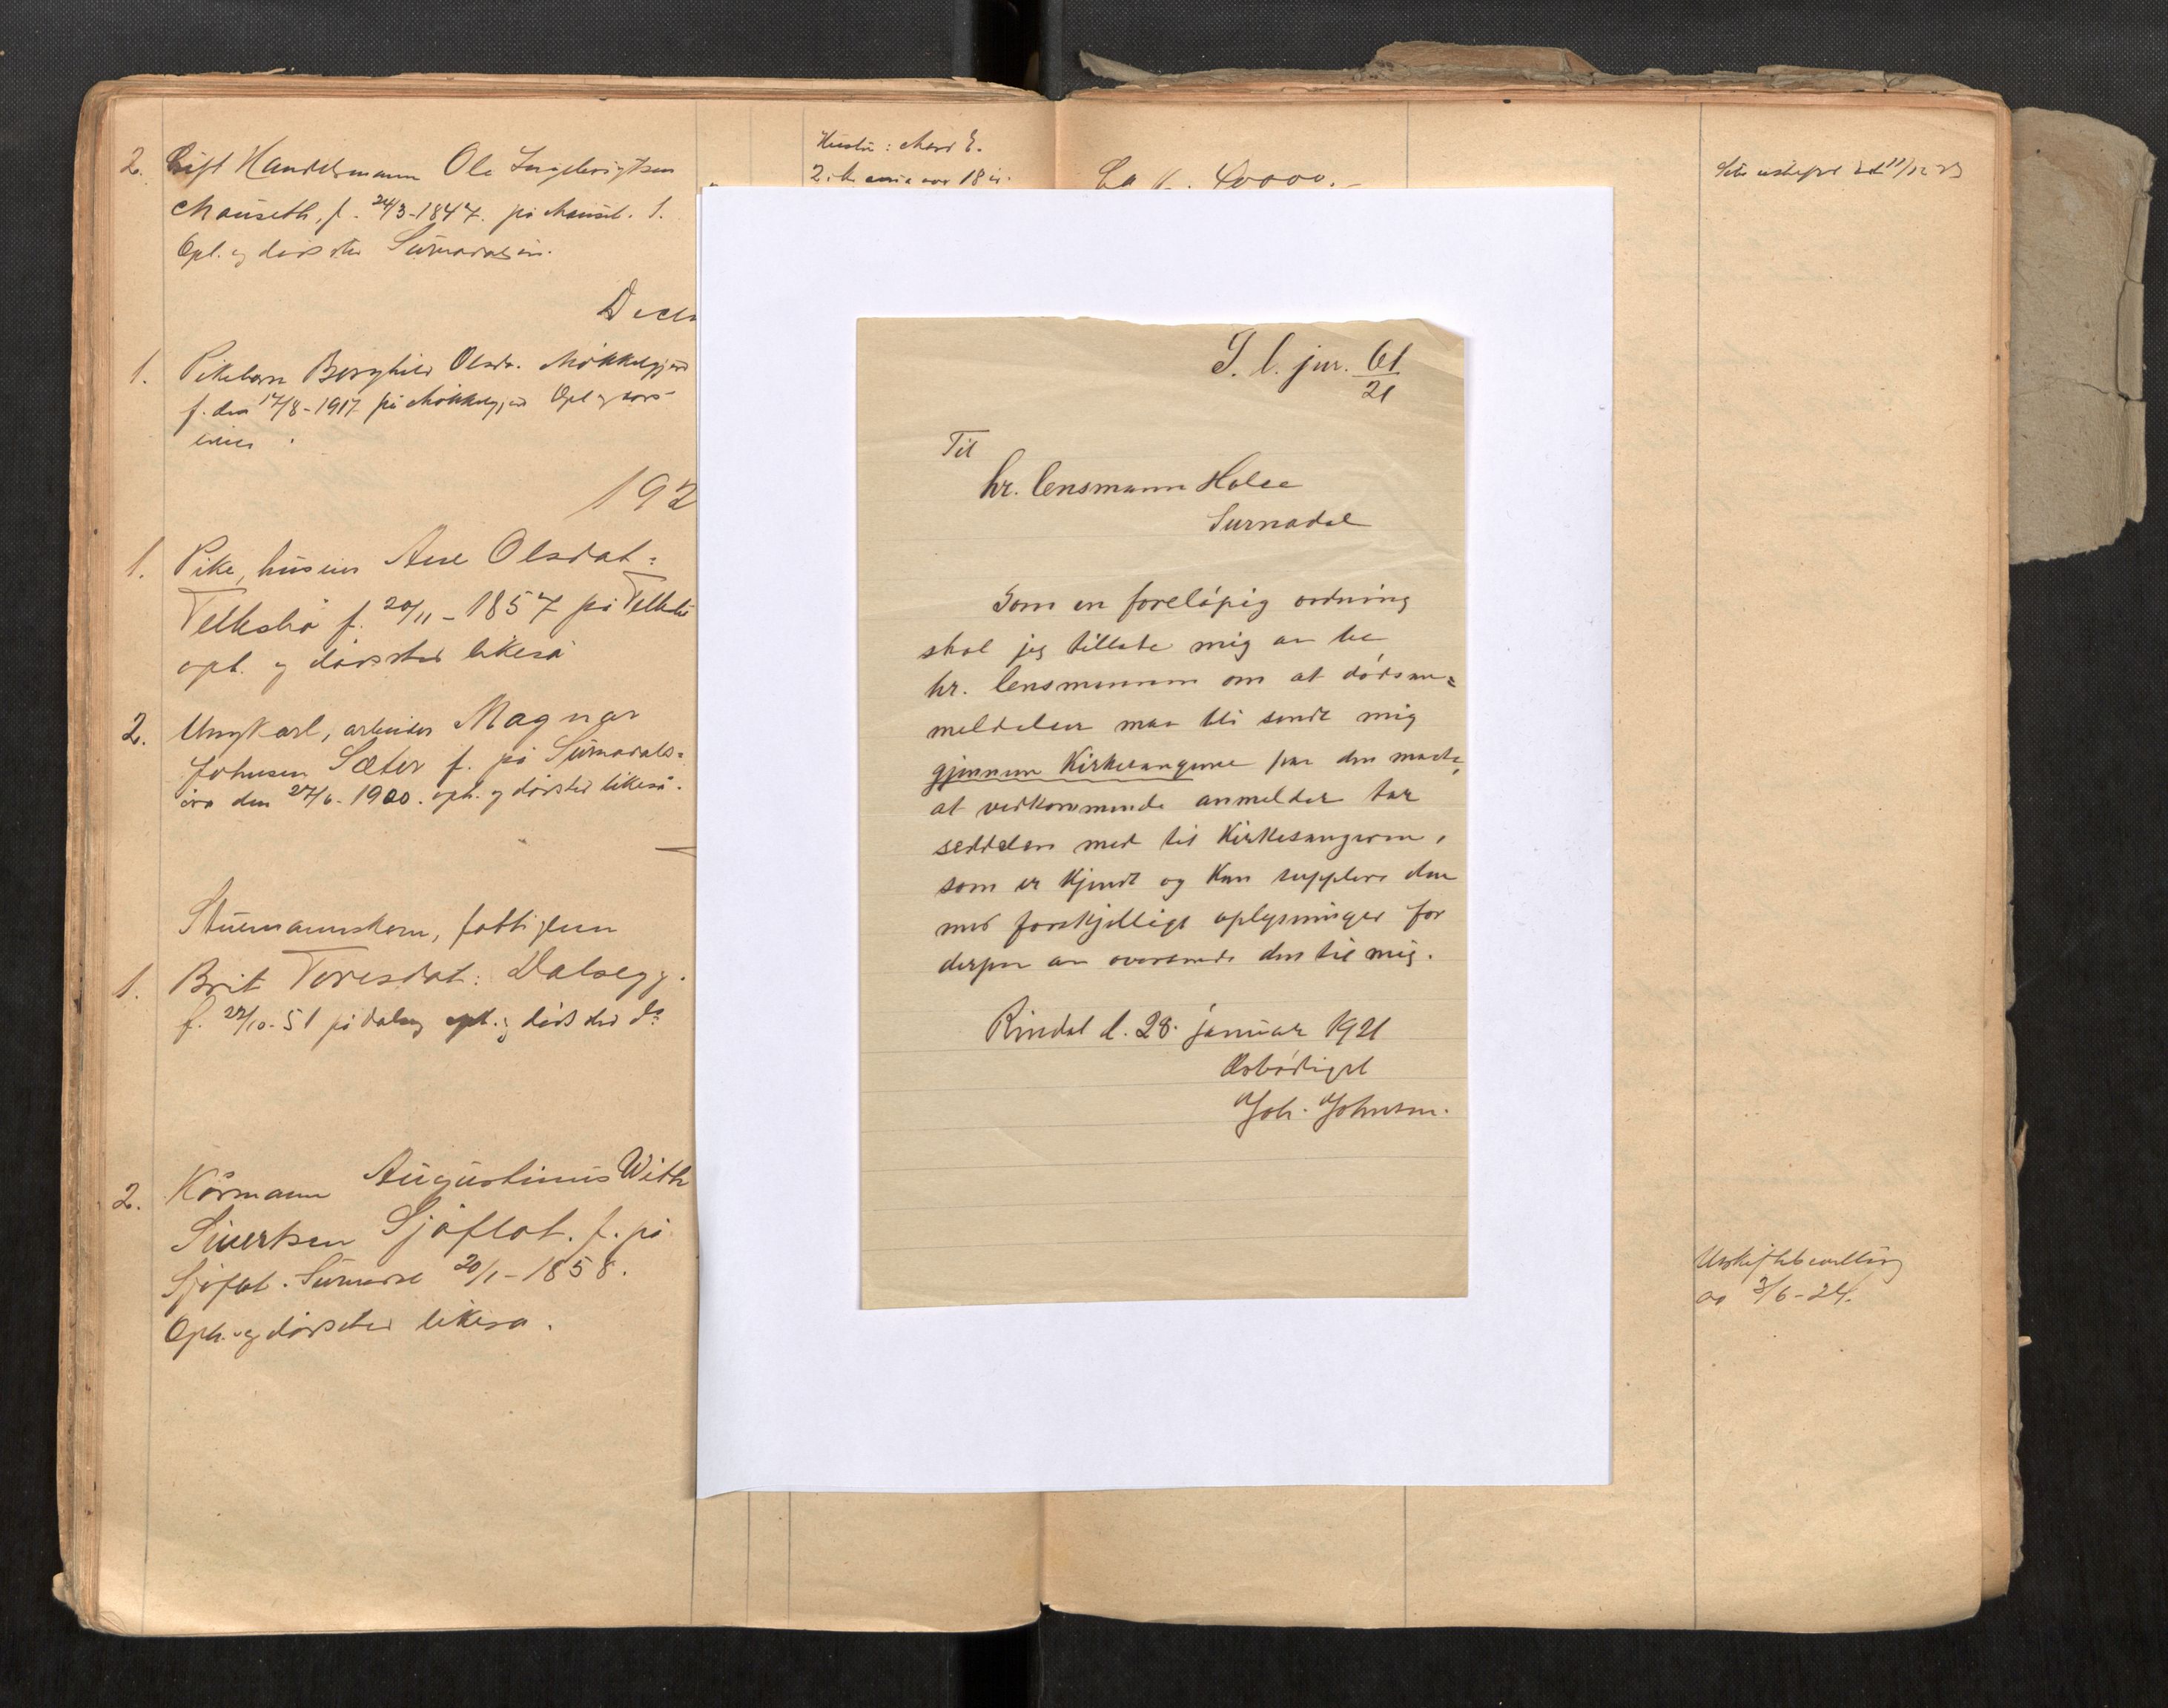 2. Gift Handelsmann Ole Ingebrigtsen
Mauseth, f. 24/3-1847. på Mauset. S.
Opl. og dødssted Surnadalsøra.
1. Pikebarn Borghild Olsdr. Møkkelgjerd
f. den 17/8-1917 på Møkkelgjerd Opl og døds-
192
1. Pike, huseier Ane Olsdat:
Telleshø f. 20/11-1857 på
oph. og dødssted likeså
2. Ungkarl, arbeider Magnar
Johnsen Sæter f. på Surnadals=
øra den 27/6-1900. oph. og dødssted likeså.
Stuemannskone, fattiglem
1. Brit Toresdat: Dalsegg.
f. 27/10-51 på Dalsegg oph. og dødssted do
2. Kårmann Augustinus With
Sivertsen Sjøflot. f. på
Sjøflot. Surnadal 20/1-1858.
Oph. og dødssted likeså.
Hustru: Marit E.
18 år.
Ca kr. 40000.-
11/12 23
Uskiftebevilling
av 3/6-24.
S. l. jnr. 61/21
Til
hr. lensmann Halse
Surnadal
Som en foreløpig ordning
skal jeg tillate mig aa be
hr. lensmannen om at dødsan=
meldelser maa bli sendt mig
gjennem Kirkesangerne paa den maate,
at vedkommende anmelder tar
seddelen med til Kirkesangeren,
som er kjendt og kan supplere den
med forskjellige oplysninger for
derpaa aa oversende den til mig.
Rindal d. 28. januar 1921
Ærbødigst
Joh. Johnsen.